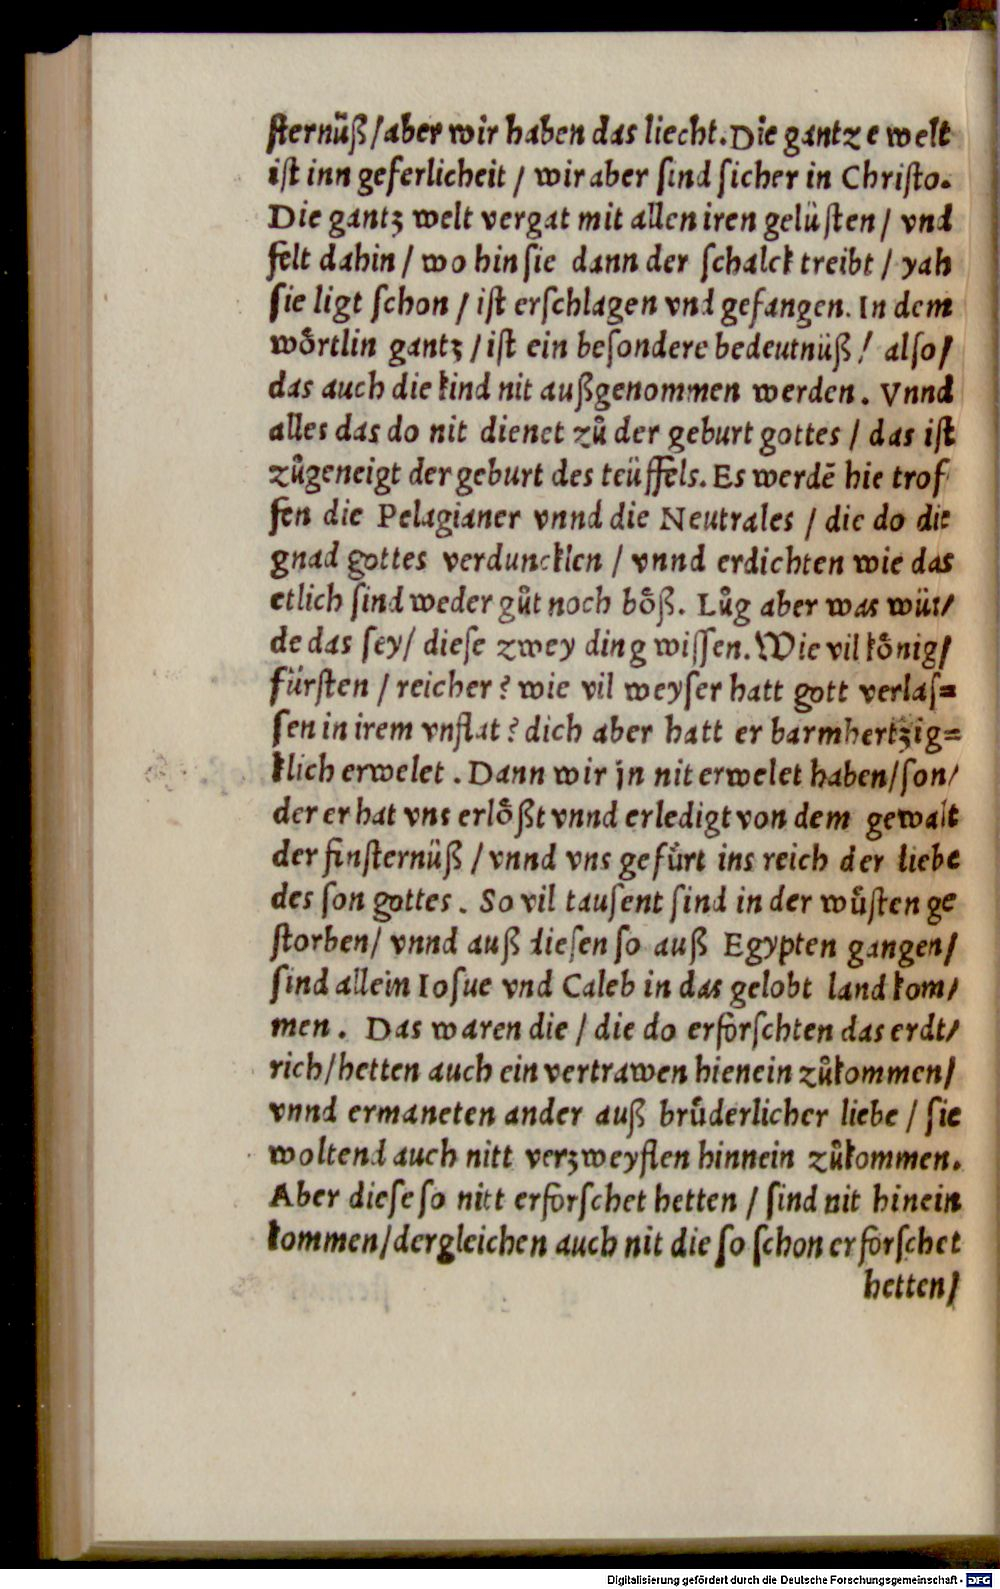 ſternüß/aber wir haben das liecht. Die gantze welt
iſt inn geferlicheit / wir aber ſind ſicher in Chriſto.
Die gantʒ welt vergat mit allen iren gelüſten / vnd
felt dahin / wo hin ſie dann der ſchalck treibt / yah
ſie ligt ſchon / iſt erſchlagen vnd gefangen. In dem
woͤrtlin gantʒ / iſt ein beſondere bedeutnüß / alſo/
das auch die kind nit außgenommen werden. Vnnd
alles das do nit dienet zuͦ der geburt gottes / das iſt
zuͦgeneigt der geburt des teüffels. Es werdē hie trof
fen die Pelagianer vnnd die Neutrales / die do die
gnad gottes verduncklen / vnnd erdichten wie das
etlich ſind weder guͦt noch boͤß. Luͦg aber was wür/
de das ſey/ dieſe zwey ding wiſſen. Wie vil koͤnig/
fürſten / reicher? wie vil weyſer hatt gott verlaſ=
ſen in irem vnflat? dich aber hatt er barmhertʒig=
klich erwelet. Dann wir jn nit erwelet haben/ſon/
der er hat vns erloͤßt vnnd erledigt von dem gewalt
der finſternüß / vnnd vns gefuͤrt ins reich der liebe
des ſon gottes. So vil tauſent ſind in der wuͤſten ge
ſtorben/ vnnd auß dieſen ſo auß Egypten gangen/
ſind allein Ioſue vnd Caleb in das gelobt land kom/
men. Das waren die / die do erforſchten das erdt/
rich/hetten auch ein vertrawen hienein zuͦkommen/
vnnd ermaneten ander auß bruͤderlicher liebe / ſie
woltend auch nitt verʒweyflen hinnein zuͦkommen.
Aber dieſe ſo nitt erforſchet hetten / ſind nit hinein
kommen/dergleichen auch nit die ſo ſchon erforſchet
hetten/
Digitalisierung gefördert durch die Deutsche Forschungsgemeinschaft - DFG